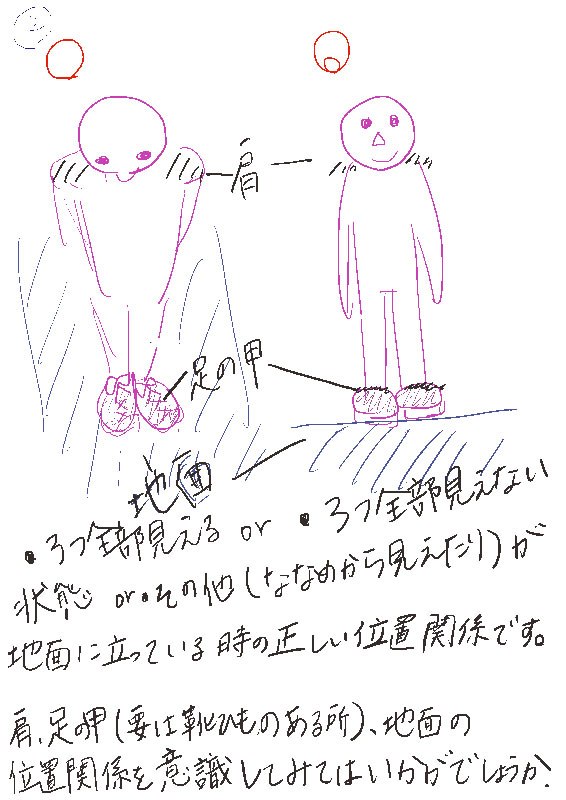 肩
足の甲
地面
・3つ全部見える or ・3つ全部見えない
状態 or・その他(ななめから見えたり)が
地面に立っている時の正しい位置関係です。
肩、足の甲(要は靴ひものある所)、地面の
位置関係を意識してみてはいかがでしょうか?